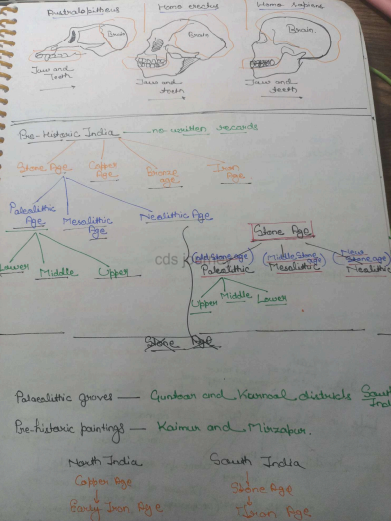 Australopithecus
Homo erectus
Homo sapiens
Brain
Brain
Brain
Jaw and
teeth
Jaw and
teeth
Jaw and
teeth
Pre-Historic India — no written records
Stone Age
Copper
Age
Bronze
age
Iron
Age
Palealithic
Age
Mesalithic
Age
Nealithic Age
Lower
Middle
Upper
Stone Age
(Old Stone age)
Palealithic
(Middle Stone
age)
Mesalithic
(New
Stone age)
Nealithic
Upper
Middle
Lower
cds
Stone Age
Palaealithic graves — Guntoor and Kurnool districts South
Ind
Pre-historic paintings — Kaimur and Mirzapur.
North India
Copper Age
Early Iron Age
South India
Stone Age
Iron Age